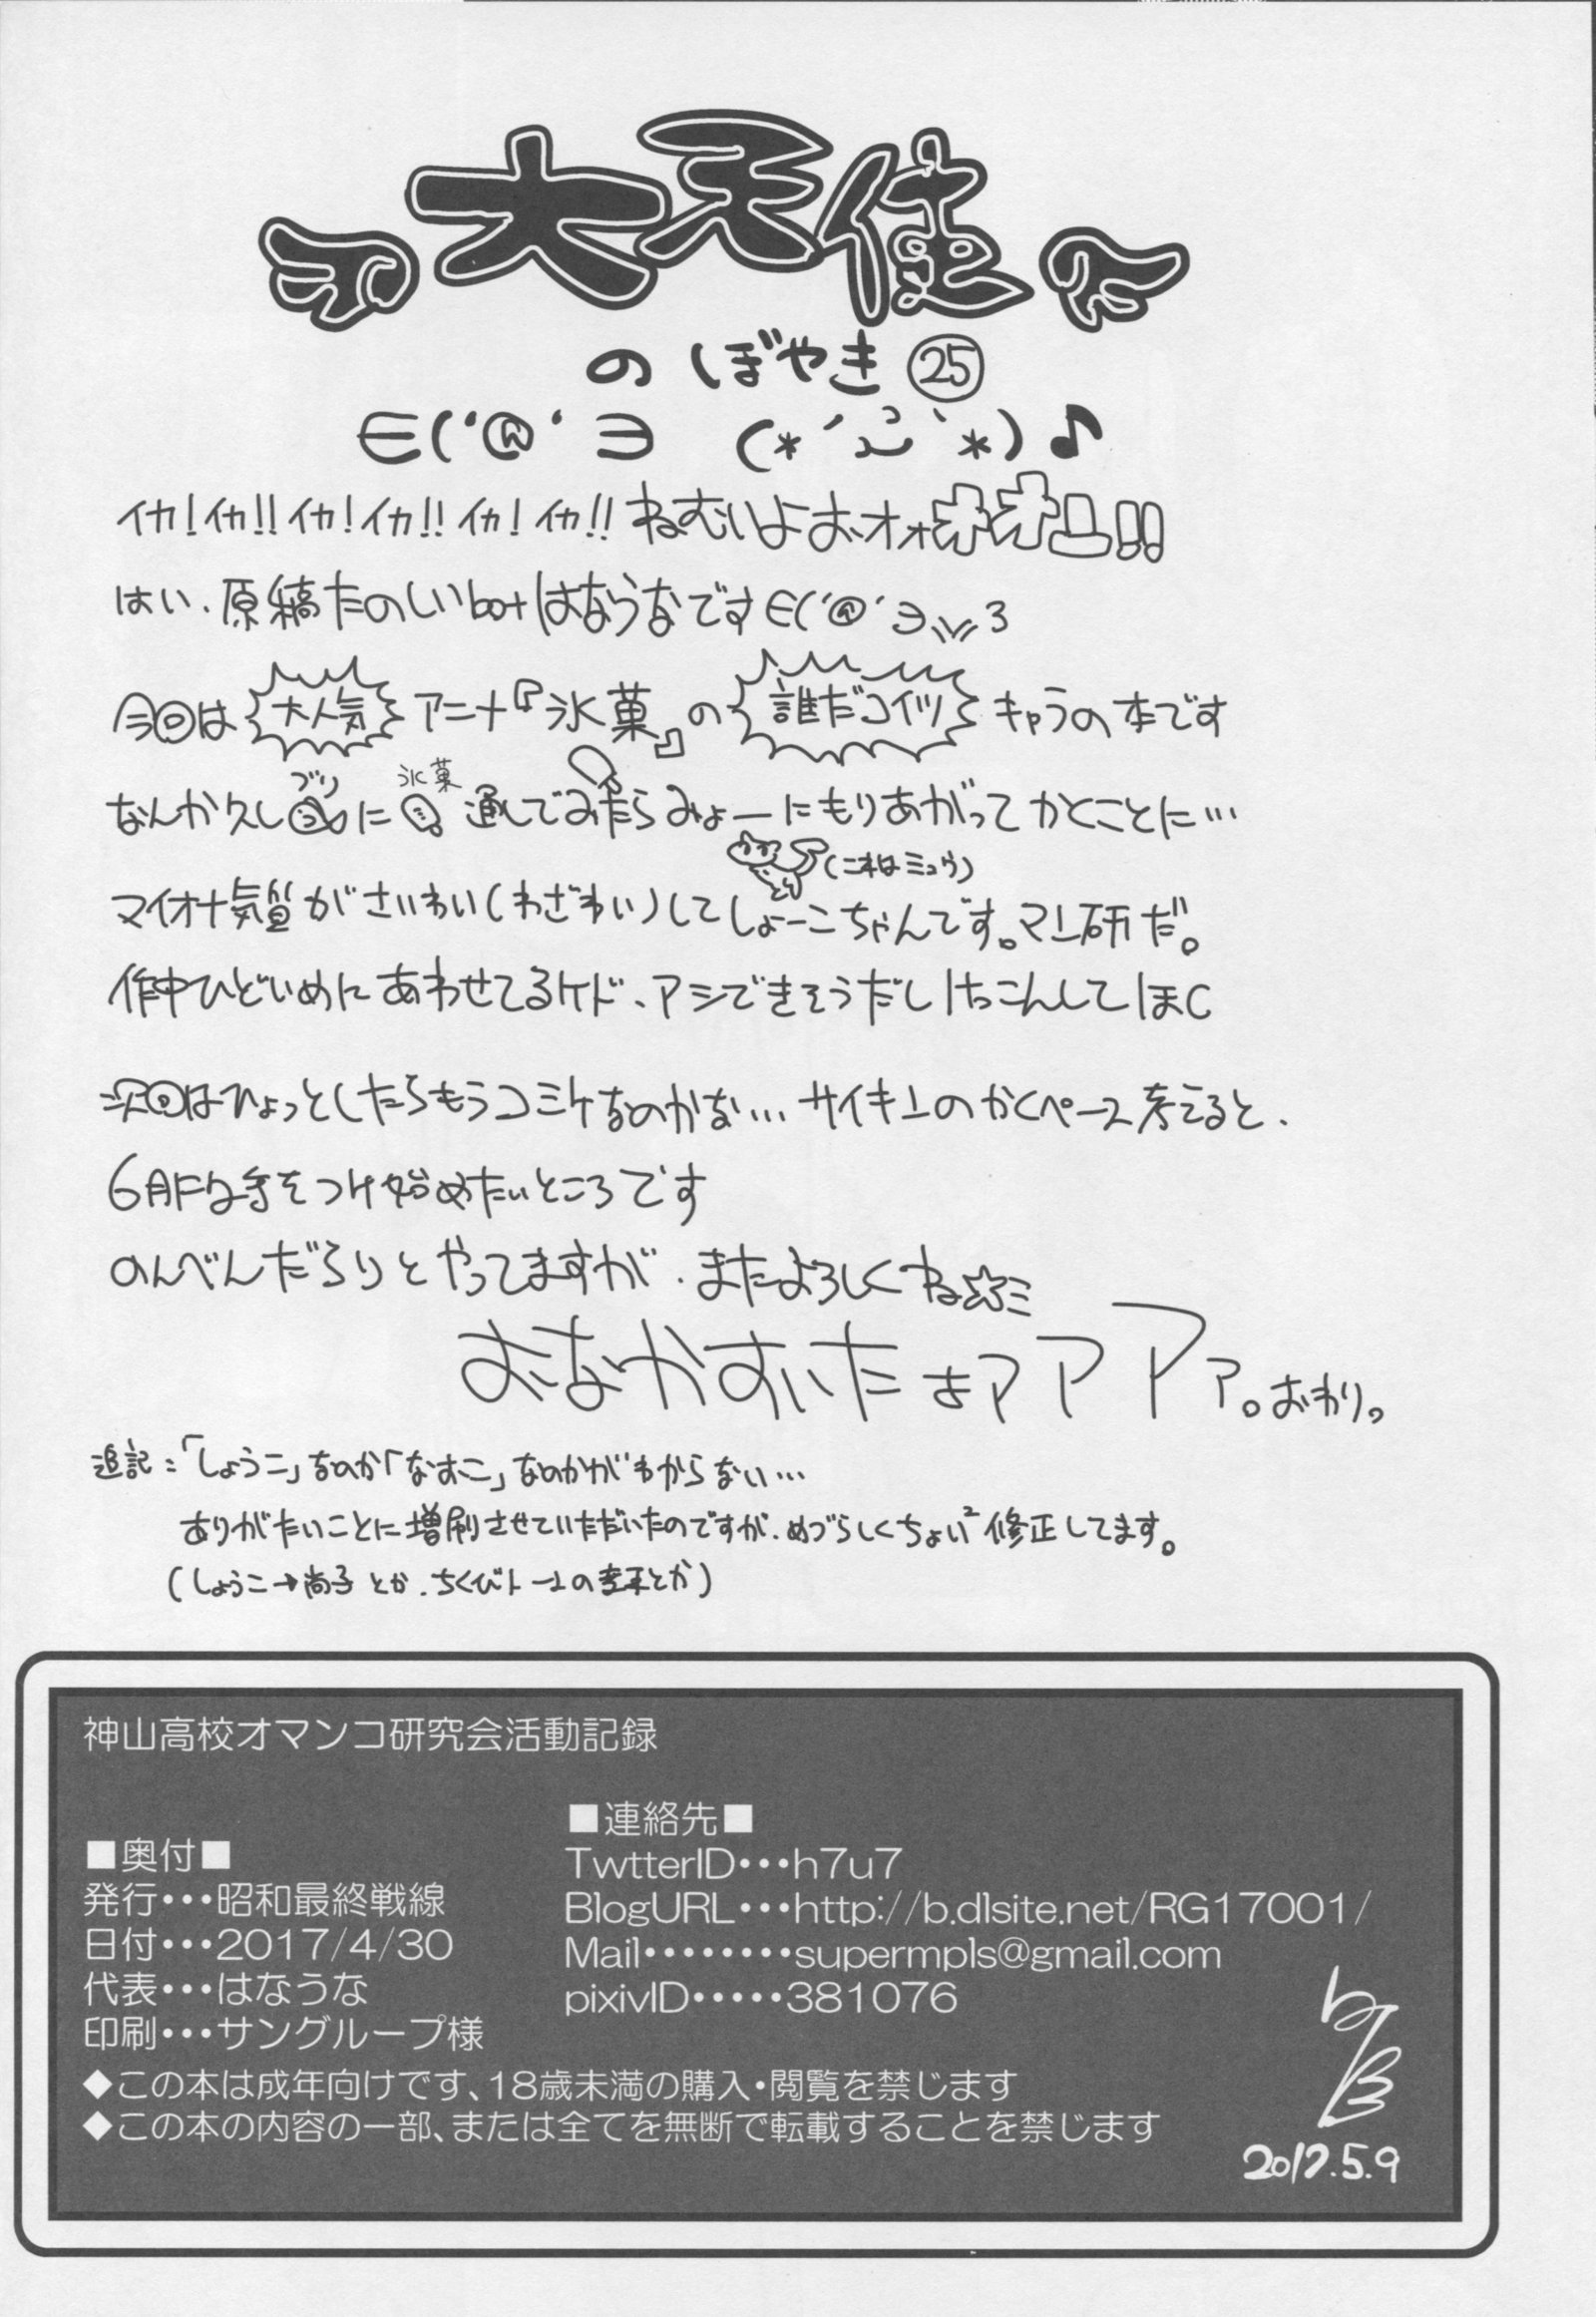 大天使
のぼやき㉕
∈('@'∋ (*´`*)♪
イカ!イカ!!イカ!イカ!!イカ!イカ!!ねむいよおオォオオン!!
はい、原稿たのしいbotはなうなです∈('@'∋ 3
今回は大人気アニメ『氷菓』の誰だコイツキャラの本です
なんか久しブリに氷菓通しでみたらみょーにもりあがってかくことに…
(これはミュウ)
マイナー気質がさいわい(わざわい)してしょーこちゃんです。マン研だ。
作中ひどいめにあわせてるケド、アシできそうだしけっこんしてほC
次回はひょっとしたらもうコミケなのかな…サイキンのかくペース考えると、
6月には手をつけ始めたいところです
のんべんだらりとやってますが、またよろしくね☆ミ
おなかすいたよアアアァ。おわり。
追記:「しょうこ」なのか「なおこ」なのかがわからない…
ありがたいことに増刷させていただいたのですが、めづらしくちょい²修正してます。
(しょうこ→尚子とか、ちくびトーンの とか)
神山高校オマンコ研究会活動記録
■奥付■
発行・・・昭和最終戦線
日付・・・2017/4/30
代表・・・はなうな
印刷・・・サングループ様
■連絡先■
TwtterID・・・h7u7
BlogURL・・・http://b.dlsite.net/RG17001/
Mail・・・・・・・・supermpls@gmail.com
pixivID・・・・・381076
◆この本は成年向けです、18歳未満の購入・閲覧を禁じます
◆この本の内容の一部、または全てを無断で転載することを禁じます
2017.5.9